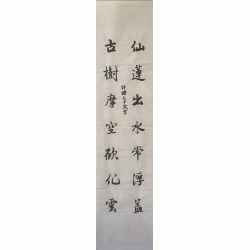 仙蓬出水常浮益
古樹摩空欲化雲